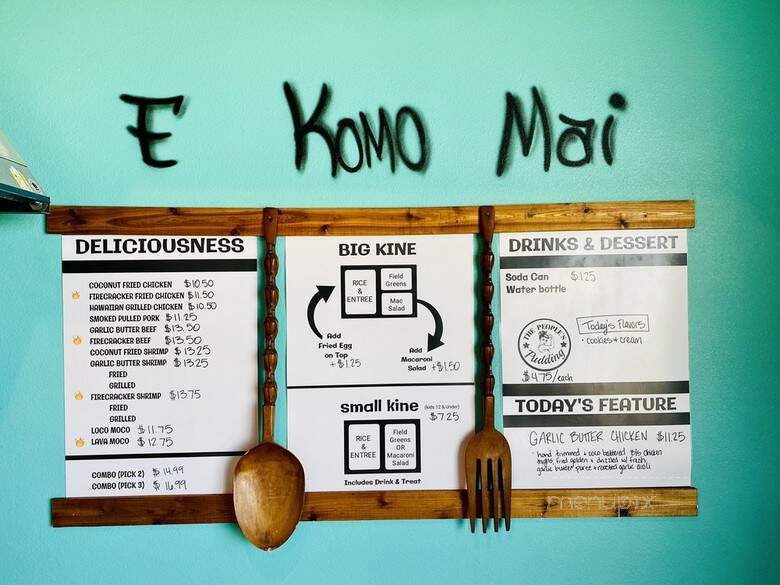 E Komo Mai
DELICIOUSNESS
COCONUT FRIED CHICKEN $10.50
FIRECRACKER FRIED CHICKEN $11.50
HAWAIIAN GRILLED CHICKEN $10.50
SMOKED PULLED PORK $11.25
GARLIC BUTTER BEEF $13.50
FIRECRACKER BEEF $13.50
COCONUT FRIED SHRIMP $13.25
GARLIC BUTTER SHRIMP $13.25
FRIED
GRILLED
FIRECRACKER SHRIMP $13.75
FRIED
GRILLED
LOCO MOCO $11.75
LAVA MOCO $12.75
COMBO (PICK 2) $14.99
COMBO (PICK 3) $16.99
BIG KINE
RICE
&
ENTREE
Field
Greens
Mac
Salad
Add
Fried Egg
on Top
+$1.25
Add
Macaroni
Salad +$1.50
small kine (kids 12 & Under)
$7.25
RICE
&
ENTREE
Field
Greens
OR
Macaroni
Salad
Includes Drink & Treat
DRINKS & DESSERT
Soda Can $1.25
Water bottle
THE PEOPLE'S
Pudding
Today's Flavors
• cookies + cream
$4.75/each
TODAY'S FEATURE
GARLIC BUTTER CHICKEN $11.25
hand trimmed + coco battered chicken
thighs, fried golden + drizzled w/ fresh
garlic butter puree + roasted garlic aioli
menupix